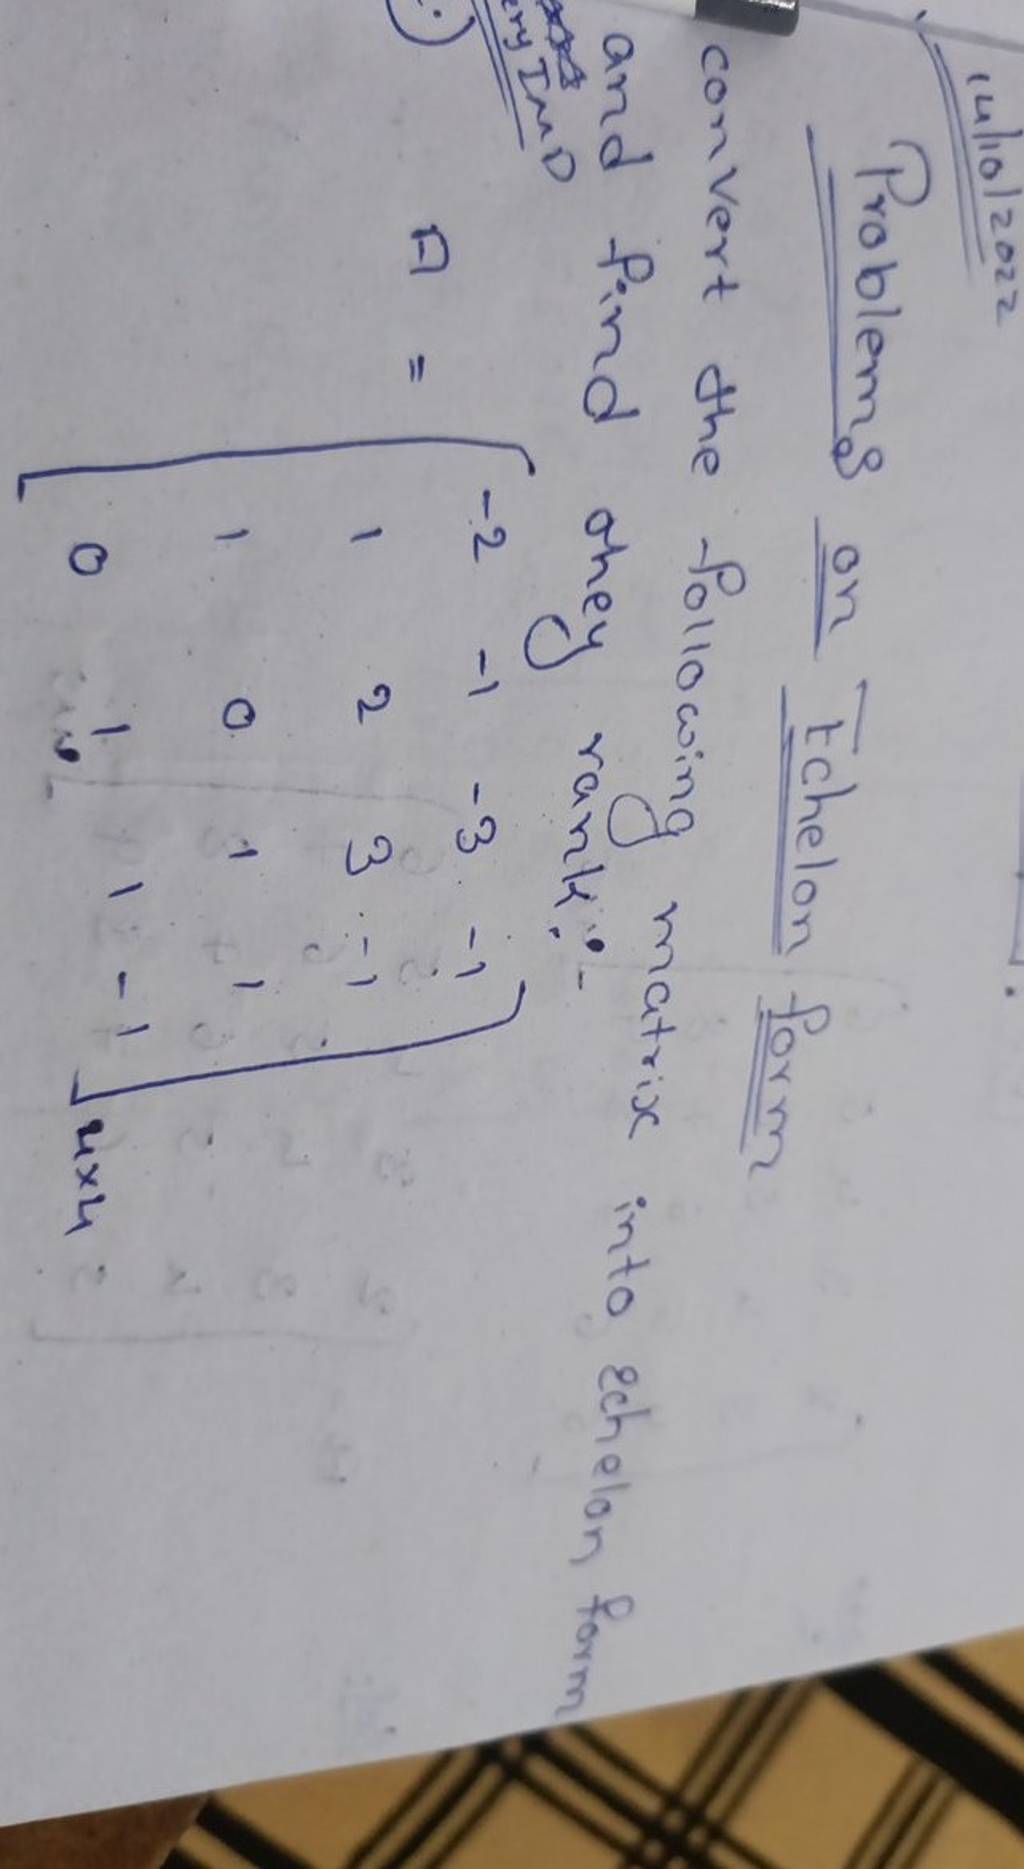 14/10/2022
Problems on Echelon form
convert the following matrix into echelon form
and find they rank:-
A = [ -2 -1 -3 -1
1 2 3 -1
1 0 1 1
0 1 1 -1 ] 4x4